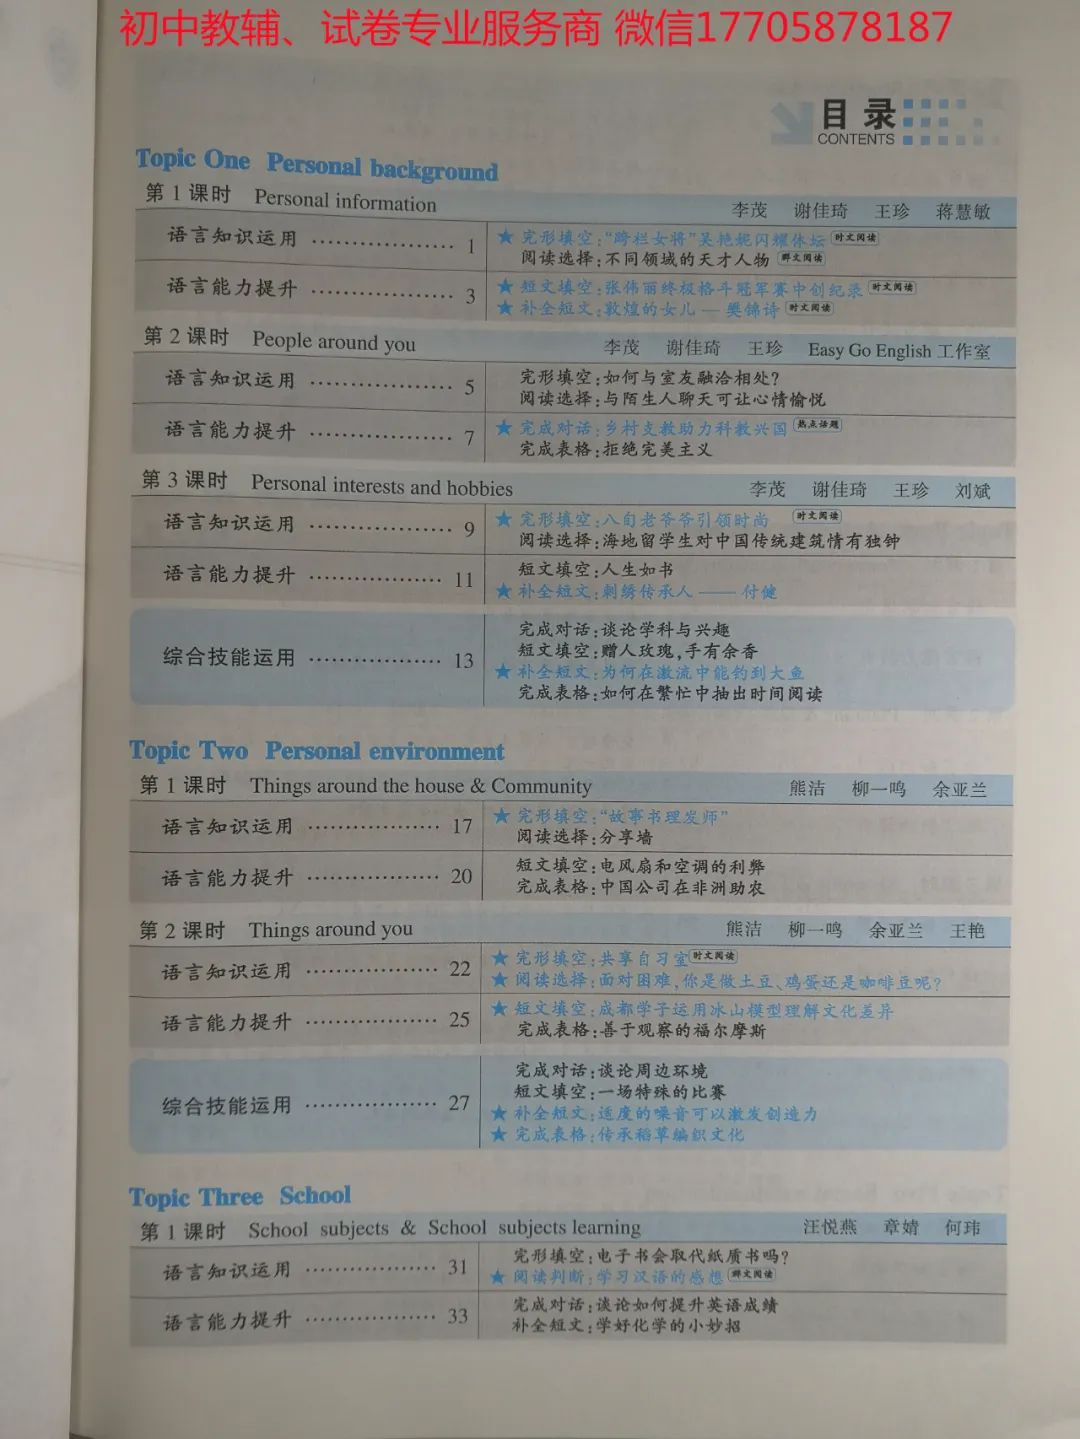 初中教辅、试卷专业服务商 微信17705878187
目录
CONTENTS
Topic One Personal background
第 1 课时 Personal information 李茂 谢佳琦 王珍 蒋慧敏
语言知识运用 ·················· 1
★ 完形填空:“跨栏女将”吴艳妮闪耀体坛 时文阅读
阅读选择:不同领域的天才人物 群文阅读
语言能力提升 ·················· 3
★ 短文填空:张伟丽终极格斗冠军赛中创纪录 时文阅读
★ 补全短文:敦煌的女儿 — 樊锦诗 时文阅读
第 2 课时 People around you 李茂 谢佳琦 王珍 Easy Go English 工作室
语言知识运用 ·················· 5
完形填空:如何与室友融洽相处?
阅读选择:与陌生人聊天可让心情愉悦
语言能力提升 ·················· 7
★ 完成对话:乡村支教助力科教兴国 热点话题
完成表格:拒绝完美主义
第 3 课时 Personal interests and hobbies 李茂 谢佳琦 王珍 刘斌
语言知识运用 ·················· 9
★ 完形填空:八旬老爷爷引领时尚 时文阅读
阅读选择:海地留学生对中国传统建筑情有独钟
语言能力提升 ·················· 11
短文填空:人生如书
★ 补全短文:刺绣传承人 —— 付健
综合技能运用 ·················· 13
完成对话:谈论学科与兴趣
短文填空:赠人玫瑰,手有余香
★ 补全短文:为何在激流中能钓到大鱼
完成表格:如何在繁忙中抽出时间阅读
Topic Two Personal environment
第 1 课时 Things around the house & Community 熊洁 柳一鸣 余亚兰
语言知识运用 ·················· 17
★ 完形填空:“故事书理发师”
阅读选择:分享墙
语言能力提升 ·················· 20
短文填空:电风扇和空调的利弊
完成表格:中国公司在非洲助农
第 2 课时 Things around you 熊洁 柳一鸣 余亚兰 王艳
语言知识运用 ·················· 22
★ 完形填空:共享自习室 时文阅读
★ 阅读选择:面对困难,你是做土豆、鸡蛋还是咖啡豆呢?
语言能力提升 ·················· 25
★ 短文填空:成都学子运用冰山模型理解文化差异
完成表格:善于观察的福尔摩斯
综合技能运用 ·················· 27
完成对话:谈论周边环境
短文填空:一场特殊的比赛
★ 补全短文:适度的噪音可以激发创造力
★ 完成表格:传承稻草编织文化
Topic Three School
第 1 课时 School subjects & School subjects learning 汪悦燕 章婧 何玮
语言知识运用 ·················· 31
完形填空:电子书会取代纸质书吗?
★ 阅读判断:学习汉语的感想 群文阅读
语言能力提升 ·················· 33
完成对话:谈论如何提升英语成绩
补全短文:学好化学的小妙招